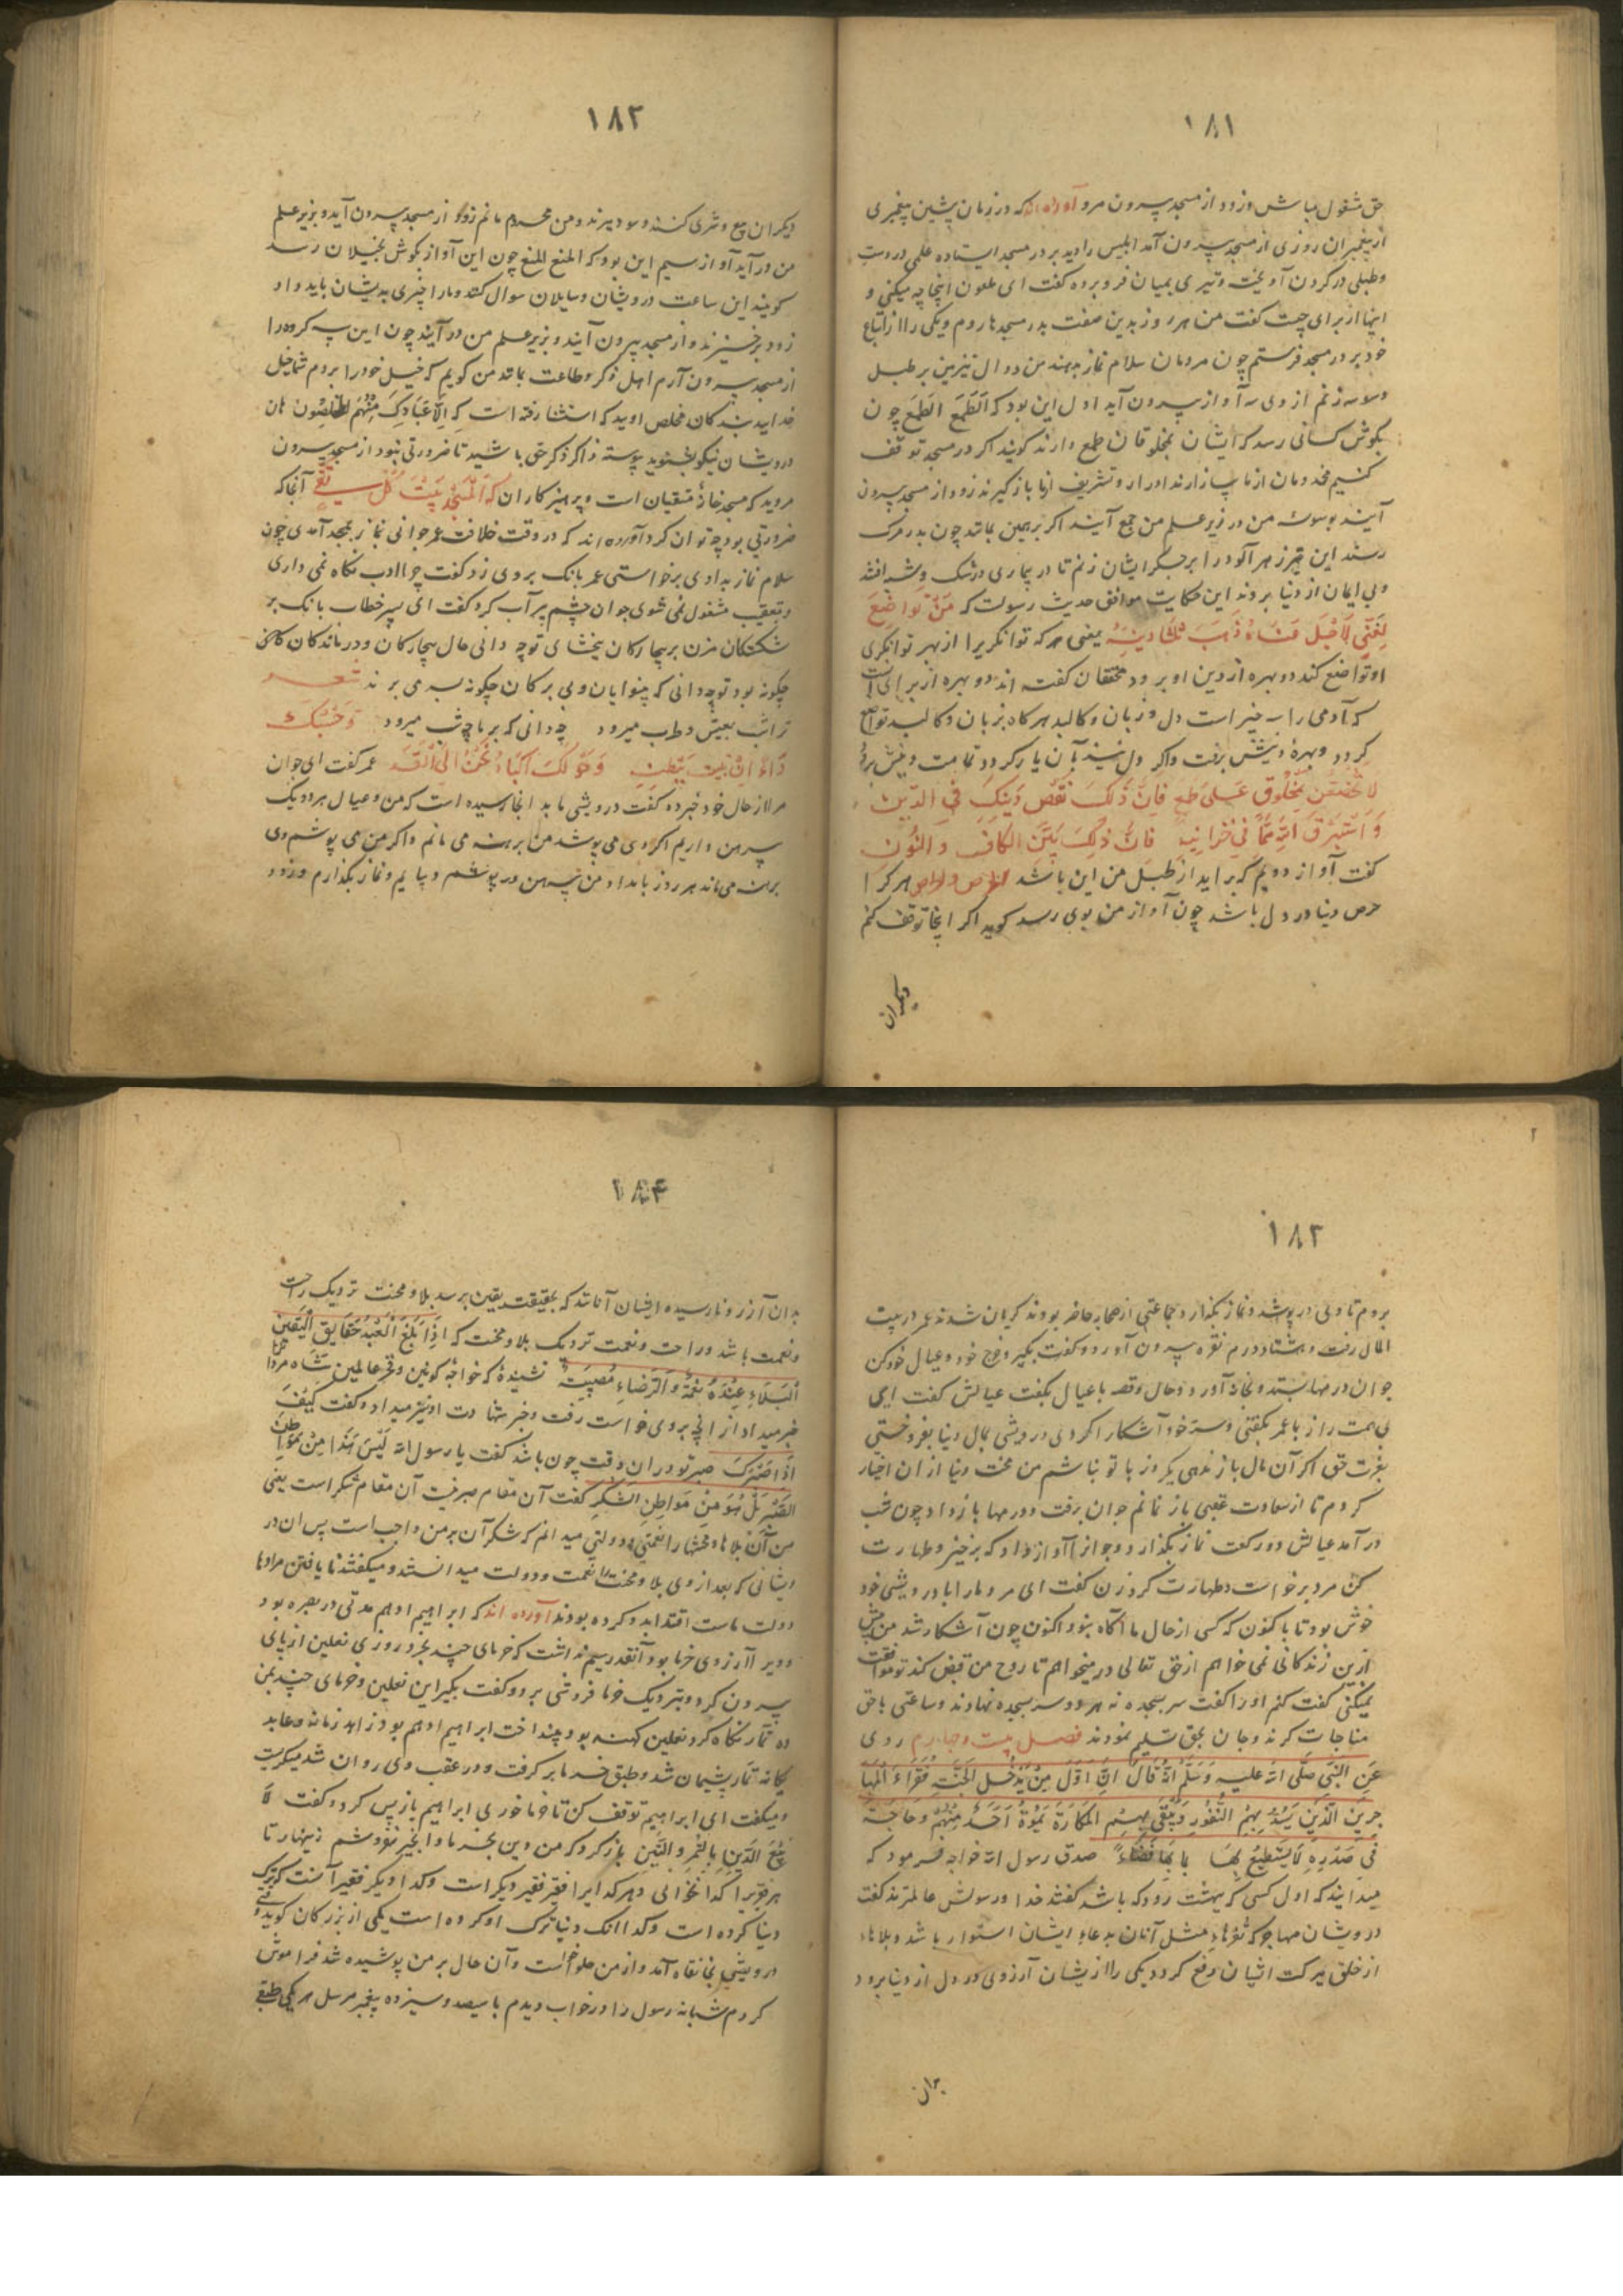 ١٨١
حق مشغول میباش و زود از مسجد بیرون مرو آورده‌اند که در زمان پیشین پیغمبری
از پیغمبران روزی از مسجد بیرون آمد ابلیس را دید بر در مسجد ایستاده علمی در دست
و طبلی در گردن آویخت و تیری بمیان فرو برده گفت ای ملعون اینجا چه میکنی و
اینها از برای چیست گفت من هر روز بدین صفت بدر مسجدها روم و یکی را از اتباع
خود بر در مسجد فرستم چون مردمان سلام نماز بدهند من دوال تیزین بر طبل
وسوسه زنم از وی سه آواز بیرون آید اول این بود که الطمع الطمع چون
بگوش کسانی رسد که ایشان بمخلوقان طمع دارند گویند اگر در مسجد توقف
کنیم مخدومان از ما باز دارند ادرار و تشریف از ما باز گیرند زود از مسجد بیرون
آیند بوسوسه من در زیر علم من جمع آیند اگر برهمین بماند چون بدر مرگ
رسند این تیر زهرآلود را بر جگر ایشان زنم تا در بیماری در شک و شبه افتد
و بی ایمان از دنیا بروند این حکایت موافق حدیث رسولست که مَنْ تَواضَعَ
لِغَنِیٍّ لِاَجْلِ غَنَاءٍ ذَهَبَ ثُلُثَا دِینِهِ یعنی هر که توانگریرا از بهر توانگری
او تواضع کند دو بهره از دین او برود محققان گفته اند دو بهره از برای آنست
که آدمی را سه چیز است دل و زبان و کالبد هر گاه بزبان و کالبد تواضع
کرد دو بهرهٔ دینش برفت و اگر دل نیز با آن یار گردد تمامت دینش برود
لا تَخْضَعَنْ لِمَخْلُوقٍ عَلی طَمَعٍ فَاِنَّ ذٰلِکَ نَقْصٌ دِینِکَ فِی الدِّینِ
وَاسْتَرْزِقِ اللّٰهَ مِمَّا فِی خَزَایِنِهِ فَاِنَّ ذٰلِکَ بَیْنَ الکَافِ وَ النُّونِ
گفت آواز دویم که برآید از طبل من این باشد الحرص و الحرص هر کرا
حرص دنیا در دل باشد چون آواز من بوی رسد گوید اگر اینجا توقف کنم
دیگران
١٨٢
دیگران بیع و شری کنند و سود برند و من محروم مانم زود از مسجد بیرون آید و بزیر علم
من درآید آواز سیم این بود که المنع المنع چون این آواز بگوش بخیلان رسد
گویند این ساعت درویشان و سایلان سوال کنند و ما را چیزی بدیشان باید داد
زود برخیزند و از مسجد بیرون آیند و بزیر علم من درآیند چون این سه گروه را
از مسجد بیرون آرم اهل ذکر و طاعت بماند من گویم که خیل خود را بردم شما خیل
خدایید بندگان مخلص اویید که استثنا رفته است که اِلَّا عِبَادَکَ مِنْهُمُ المُخْلَصُونَ هان
درویشان نیکو بشنوید پیوسته ذاکر ذکر حق باشید تا ضرورتی نبود از مسجد بیرون
مروید که مسجد خانهٔ متقیان است و پرهیزکاران که اَلْمَسْجِدُ بَیْتُ کُلِّ تَقِیٍّ آنجا که
ضرورتی بود چه توان کرد آورده‌اند که در وقت خلافت عمر جوانی نماز بمسجد آمدی چون
سلام نماز بدادی برخواستی عمر بانگ بر وی زد گفت چرا ادب نگاه نمی داری
و بتعقیب مشغول نمی شوی جوان چشم پر آب کرد گفت ای پسر خطاب بانگ بر
شکستگان مزن بر بیچارگان ببخشای تو چه دانی حال بیچارگان و درماندگان که
چگونه بود تو چه دانی که بینوایان و بی برگان چگونه بسر می برند شعر
تراشب بعیش و طرب میرود چه دانی که بر ما چه شب میرود وَحَسْبُکَ
دَاءً اَنْ تَبِیتَ بِبِطْنَةٍ وَحَوْلَکَ اَکْبَادٌ تَحِنُّ اِلَی القِدِّ عمر گفت ای جوان
مرا از حال خود خبر ده گفت درویشی ما بدانجا رسیده است که من و عیال هر دو یک
پیرهن داریم اگر وی می پوشد من برهنه می مانم و اگر من می پوشم وی
برهنه می ماند هر روز بامداد من پیرهن در پوشم و بیایم و نماز بگذارم و زود
١٨٣
بروم تا وی در پوشد و نماز بگذارد جماعتی از صحابه حاضر بودند گریان شدند عمر در بیت
المال رفت و هشتاد درم نقره بیرون آورد و گفت بگیر و خرج خود و عیال خود کن
جوان درمها بستد و بخانه آورد و حال و قصه با عیال بگفت عیالش گفت ای
بی همت راز با عمر بگفتی و سر خود آشکارا کردی درویشی بمال دنیا بفروختی
بعزت حق اگر آن مال باز ندهی یکروز با تو نباشم من محنت دنیا از آن اختیار
کردم تا از سعادت عقبی باز نمانم جوان برفت و درمها باز داد چون شب
درآمد عیالش دو رکعت نماز بگذارد و جوانرا آواز داد که برخیز و طهارت
کن مرد برخواست و طهارت کرد زن گفت ای مرد ما را با درویشی خود
خوش بود تا باکنون که کسی از حال ما آگاه نبود اکنون چون آشکار شد من بیش
ازین زندگانی نمی خواهم از حق تعالی درمیخواهم تا روح من قبض کند تو موافقت
میکنی گفت کنم او را گفت سر بسجده نه هر دو سر بسجده نهادند و ساعتی با حق
مناجات کردند و جان بحق تسلیم نمودند فصل بیست و چهارم روی
عَنِ النَّبِیِّ صَلَّی اللّٰه علیه وَسَلَّم اَنَّهُ قَالَ اِنَّ اَوَّلَ مَنْ یَدْخُلُ الجَنَّةِ فُقَرَاءُ المُهَا
جِرِینَ الَّذِینَ یُسَدُّ بِهِمُ الثُّغُورُ وَیُتَّقَی بِهِمُ المَکَارِهُ یَمُوتُ اَحَدُ مِنْهُمْ وَحَاجَتُهُ
فِی صَدْرِهِ لَا یَسْتَطِیعُ لَهَا قَضَاءً صدق رسول اللّه خواجه فرمود که
میدانید که اول کسی که ببهشت رود که باشد گفتند خدا و رسولش عالمترند گفت
درویشان مهاجر که ثغرهاء مشل آنان بدعاء ایشان استوار باشد و بلاهاء
از خلق ببرکت ایشان دفع گردد یکی را از ایشان آرزوی در دل از دنیا برود
بدان
١٨٤
بدان آرزو نارسیده ایشان آنانند که بحقیقت یقین برسد بلا و محنت نزدیک راحت
و نعمت باشد و راحت و نعمت نزدیک بلا و محنت که اِذَا بَلَغَ العَبْدُ حَقَایِقَ الیَقِینِ
اَلْبَلَاءُ عِنْدَهُ نِعْمَةٌ وَ الرَّخَاءُ مُصِیبَتٌ نشنیدهٔ که خواجهٔ کونین و فخر عالمین شاه مردانرا
خبر میداد از آنچ بر وی خواست رفت و خبر شهادت او نیز میداد و گفت کَیْفَ
اِذًا صَبْرُکَ صبر تو در آن وقت چون باشد گفت یا رسول اللّه لَیْسَ هَذَا مِنْ مَوَاطِنِ
الصَّبْرِ بَلْ هُوَ مِنْ مَوَاطِنِ الشُّکْرِ گفت آن مقام صبر نیست آن مقام شکر است یعنی
من آن بلاها و محنتها را نعمتی و دولتی میدانم که شکر آن بر من واجب است پس آن در
ویشانی که بعد از وی بلا و محنت را نعمت و دولت میدانستند و میگفتند نایافتن مرادها
دولت ماست اقتدا بدو کرده بودند آورده اند که ابراهیم ادهم مدتی در بصره بود
و ویرا آرزوی خرما بود و آنقدر سیم نداشت که خرمای چند بخرد روزی نعلین از پای
بیرون کرد و بنزدیک خرما فروشی برد و گفت بگیر این نعلین و خرمای چند بمن
ده تمار نگاه کرد نعلین کهنه بود بینداخت ابراهیم ادهم بود زاهد زمانه و عابد
یگانه تمار پشیمان شد و طبق خرما بر گرفت و در عقب وی روان شد میگریست
و میگفت ای ابراهیم توقف کن تا خرما خوری ابراهیم باز پس کرد و گفت لَا
نَبِیعُ الدِّینَ بِالتَّمْرِ وَ التِّینِ باز گرد که من دین بخرما و انجیر نفروشم زینهار تا
هر فقیرا گدا نخوانی و هر گدا را فقیر فقیر دیگر است و گدا دیگر فقیر آنست که ترک
دنیا کرده است و گدا آنک دنیا ترک او کرده است یکی از بزرگان گوید وقتی
درویشی بخانقاه آمد و از من حلوا خواست و آن حال بر من پوشیده شد فراموش
کردم شبانه رسول را در خواب دیدم با سیصد و سیزده پیغمبر مرسل هر یکی طبقی